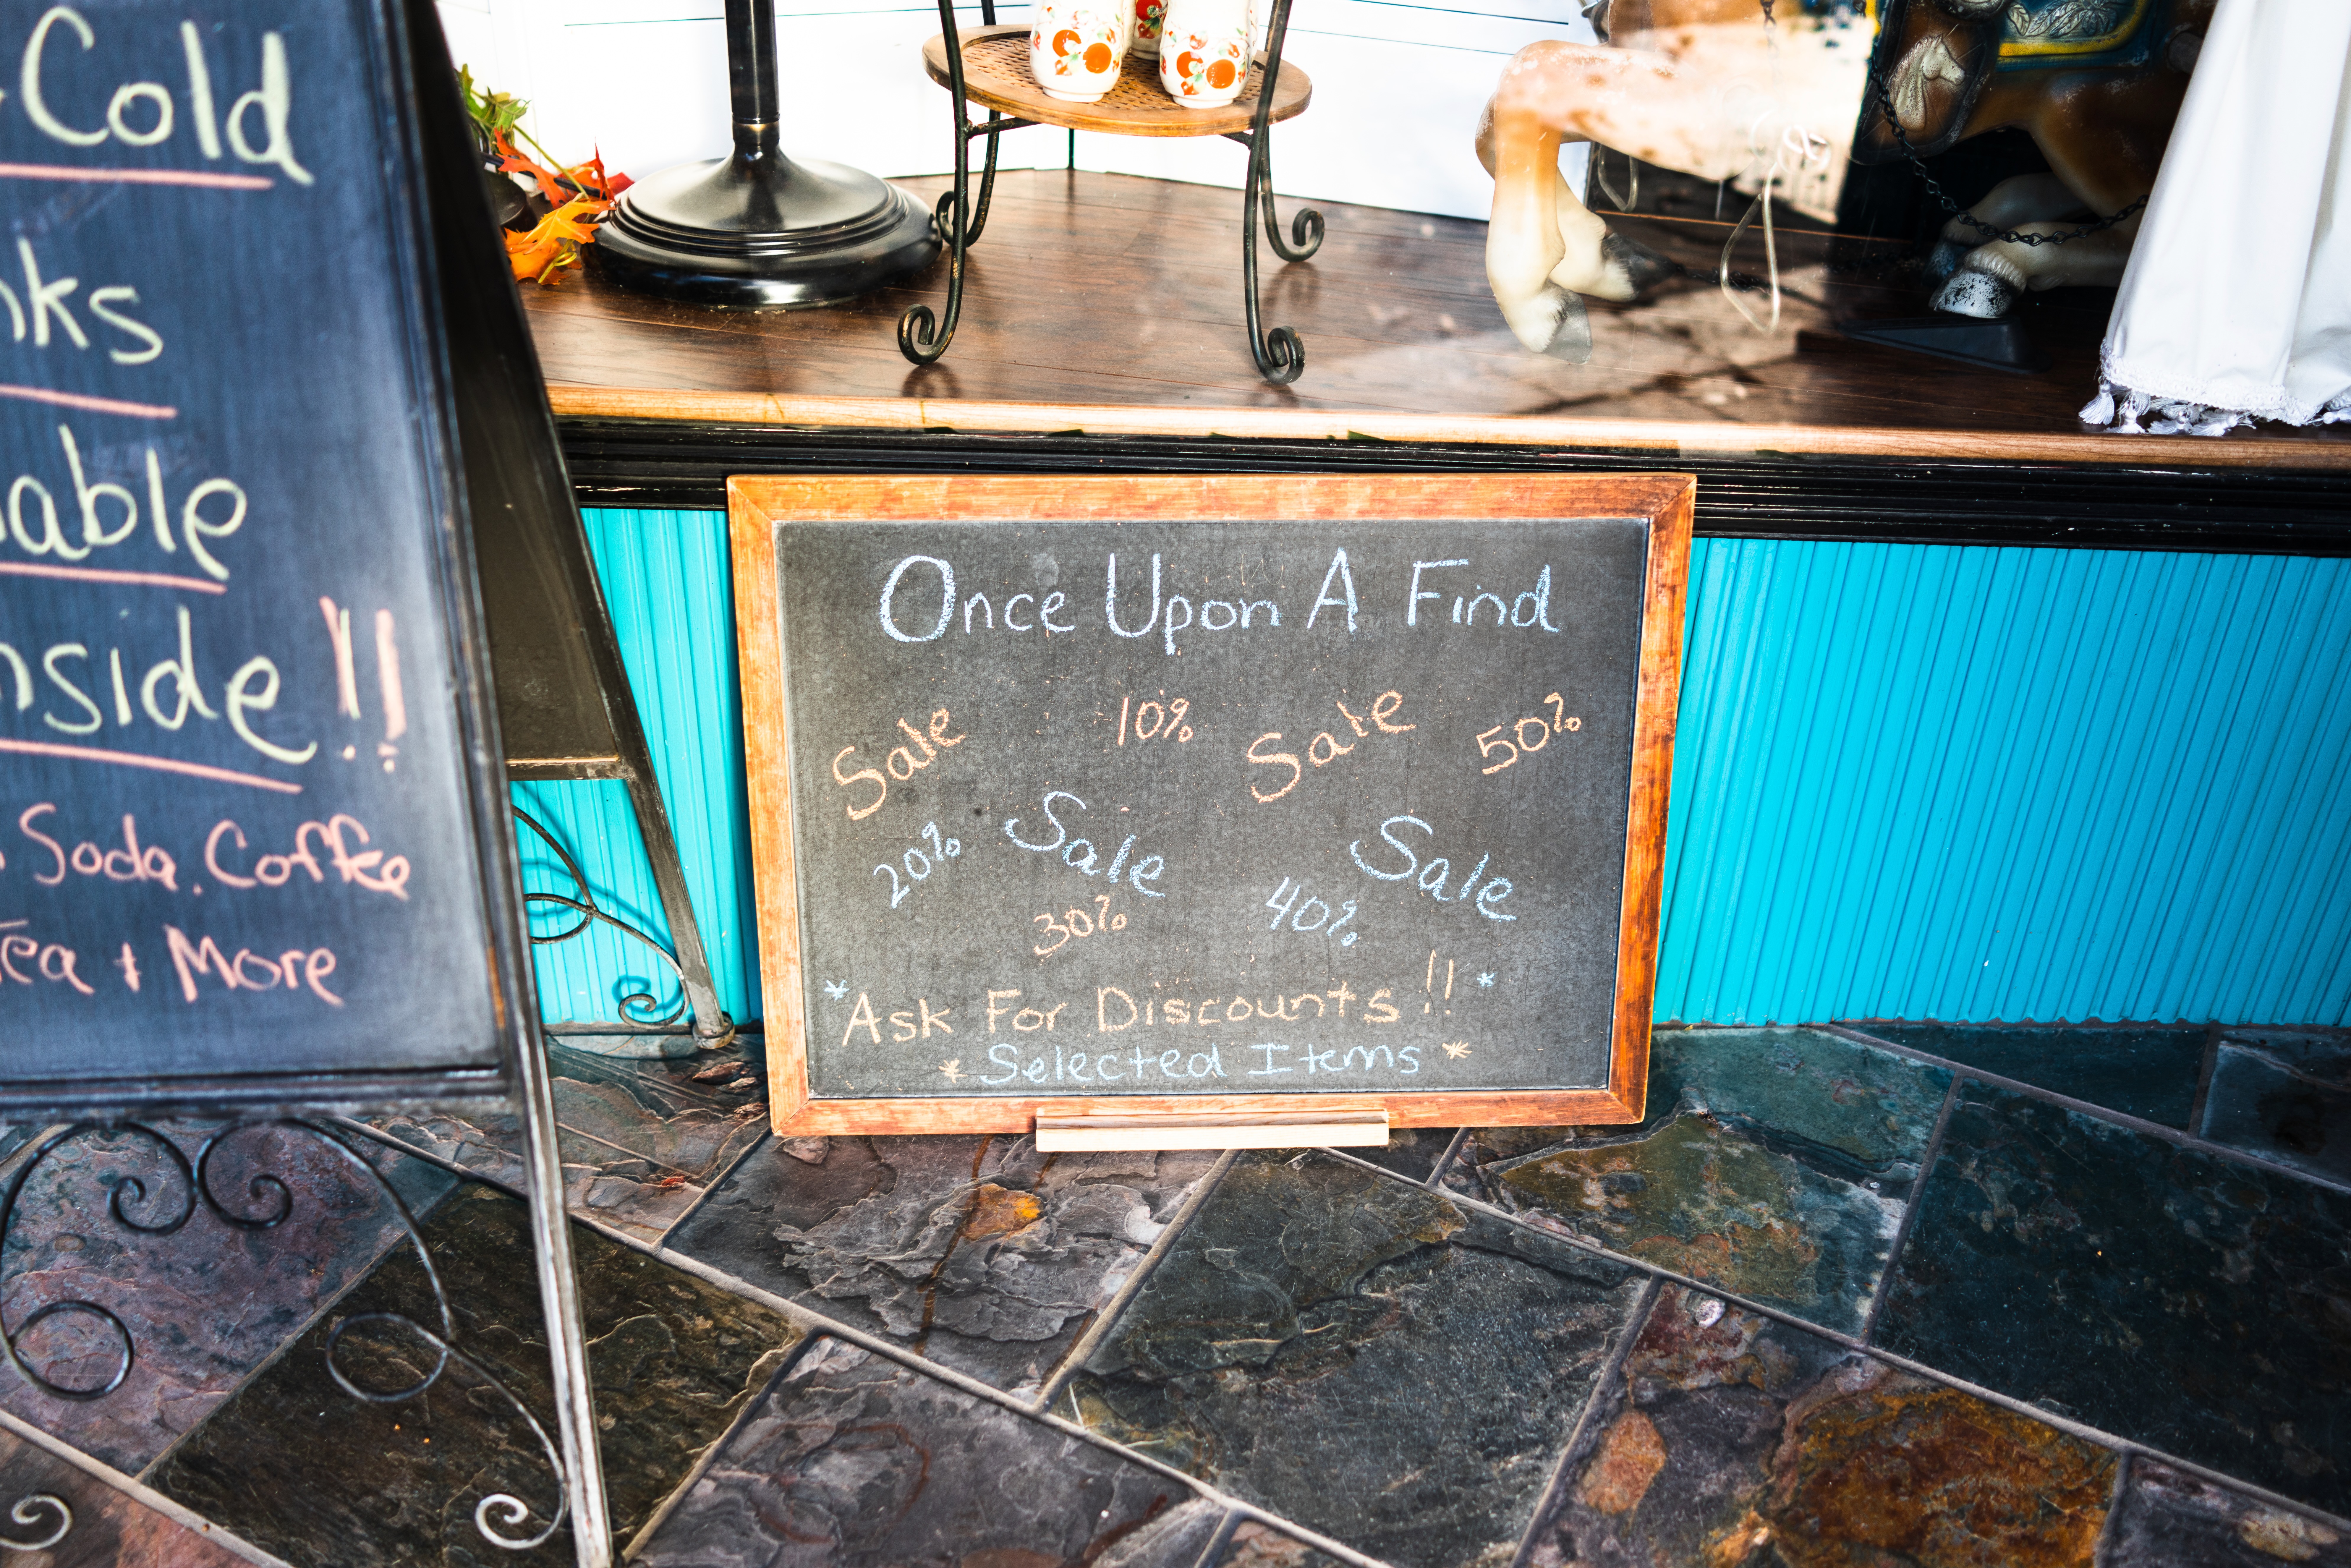 Cold
Soda. Coffee
Tea + More
Once Upon A Find
Sale 10% Sale 50%
20% Sale 40% Sale
30%
*Ask For Discounts!!*
*Selected Items*